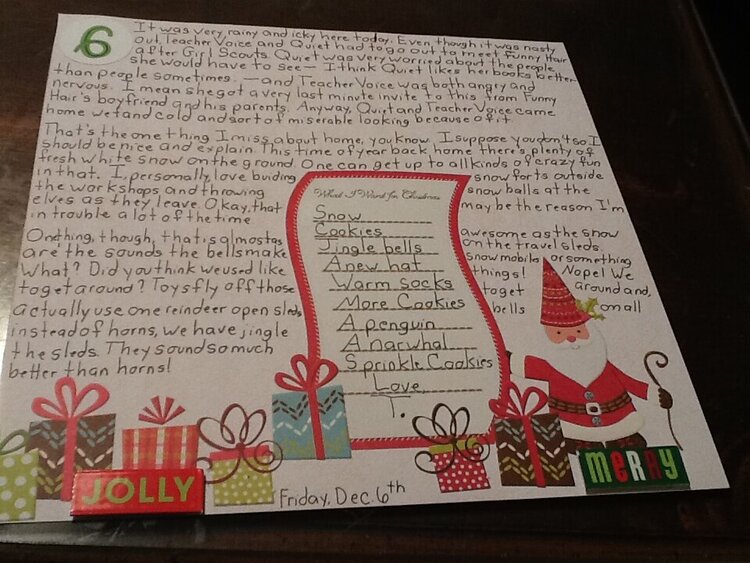 6
It was very rainy and icky here today. Even though it was nasty
out, Teacher Voice and Quiet had to go out to meet Funny Hair
after Girl Scouts. Quiet was very worried about the people
she would have to see — I think Quiet likes her books better
than people sometimes. — and Teacher Voice was both angry and
nervous. I mean she got a very last minute invite to this from Funny
Hair's boyfriend and his parents. Anyway, Quiet and Teacher Voice came
home wet and cold and sort of miserable looking because of it.
That's the one thing I miss about home, you know. I suppose you don't so I
should be nice and explain. This time of year back home there's plenty of
fresh white snow on the ground. One can get up to all kinds of crazy fun
in that. I, personally, love building snow forts outside
the workshops and throwing snow balls at the
elves as they leave. Okay, that may be the reason I'm
in trouble a lot of the time
One thing, though, that is almost as awesome as the snow
are the sounds the bells make on the travel sleds.
What? Did you think we used like snow mobiles or something
to get around? Toys fly off those things! Nope! We
actually use one reindeer open sleds to get around and,
instead of horns, we have jingle bells on all
the sleds. They sound so much
better than horns!
What I Want for Christmas
Snow
Cookies
Jingle bells
A new hat
Warm socks
More Cookies
A penguin
A narwhal
Sprinkle Cookies
Love,
T.
JOLLY
MERRY
Friday, Dec. 6th